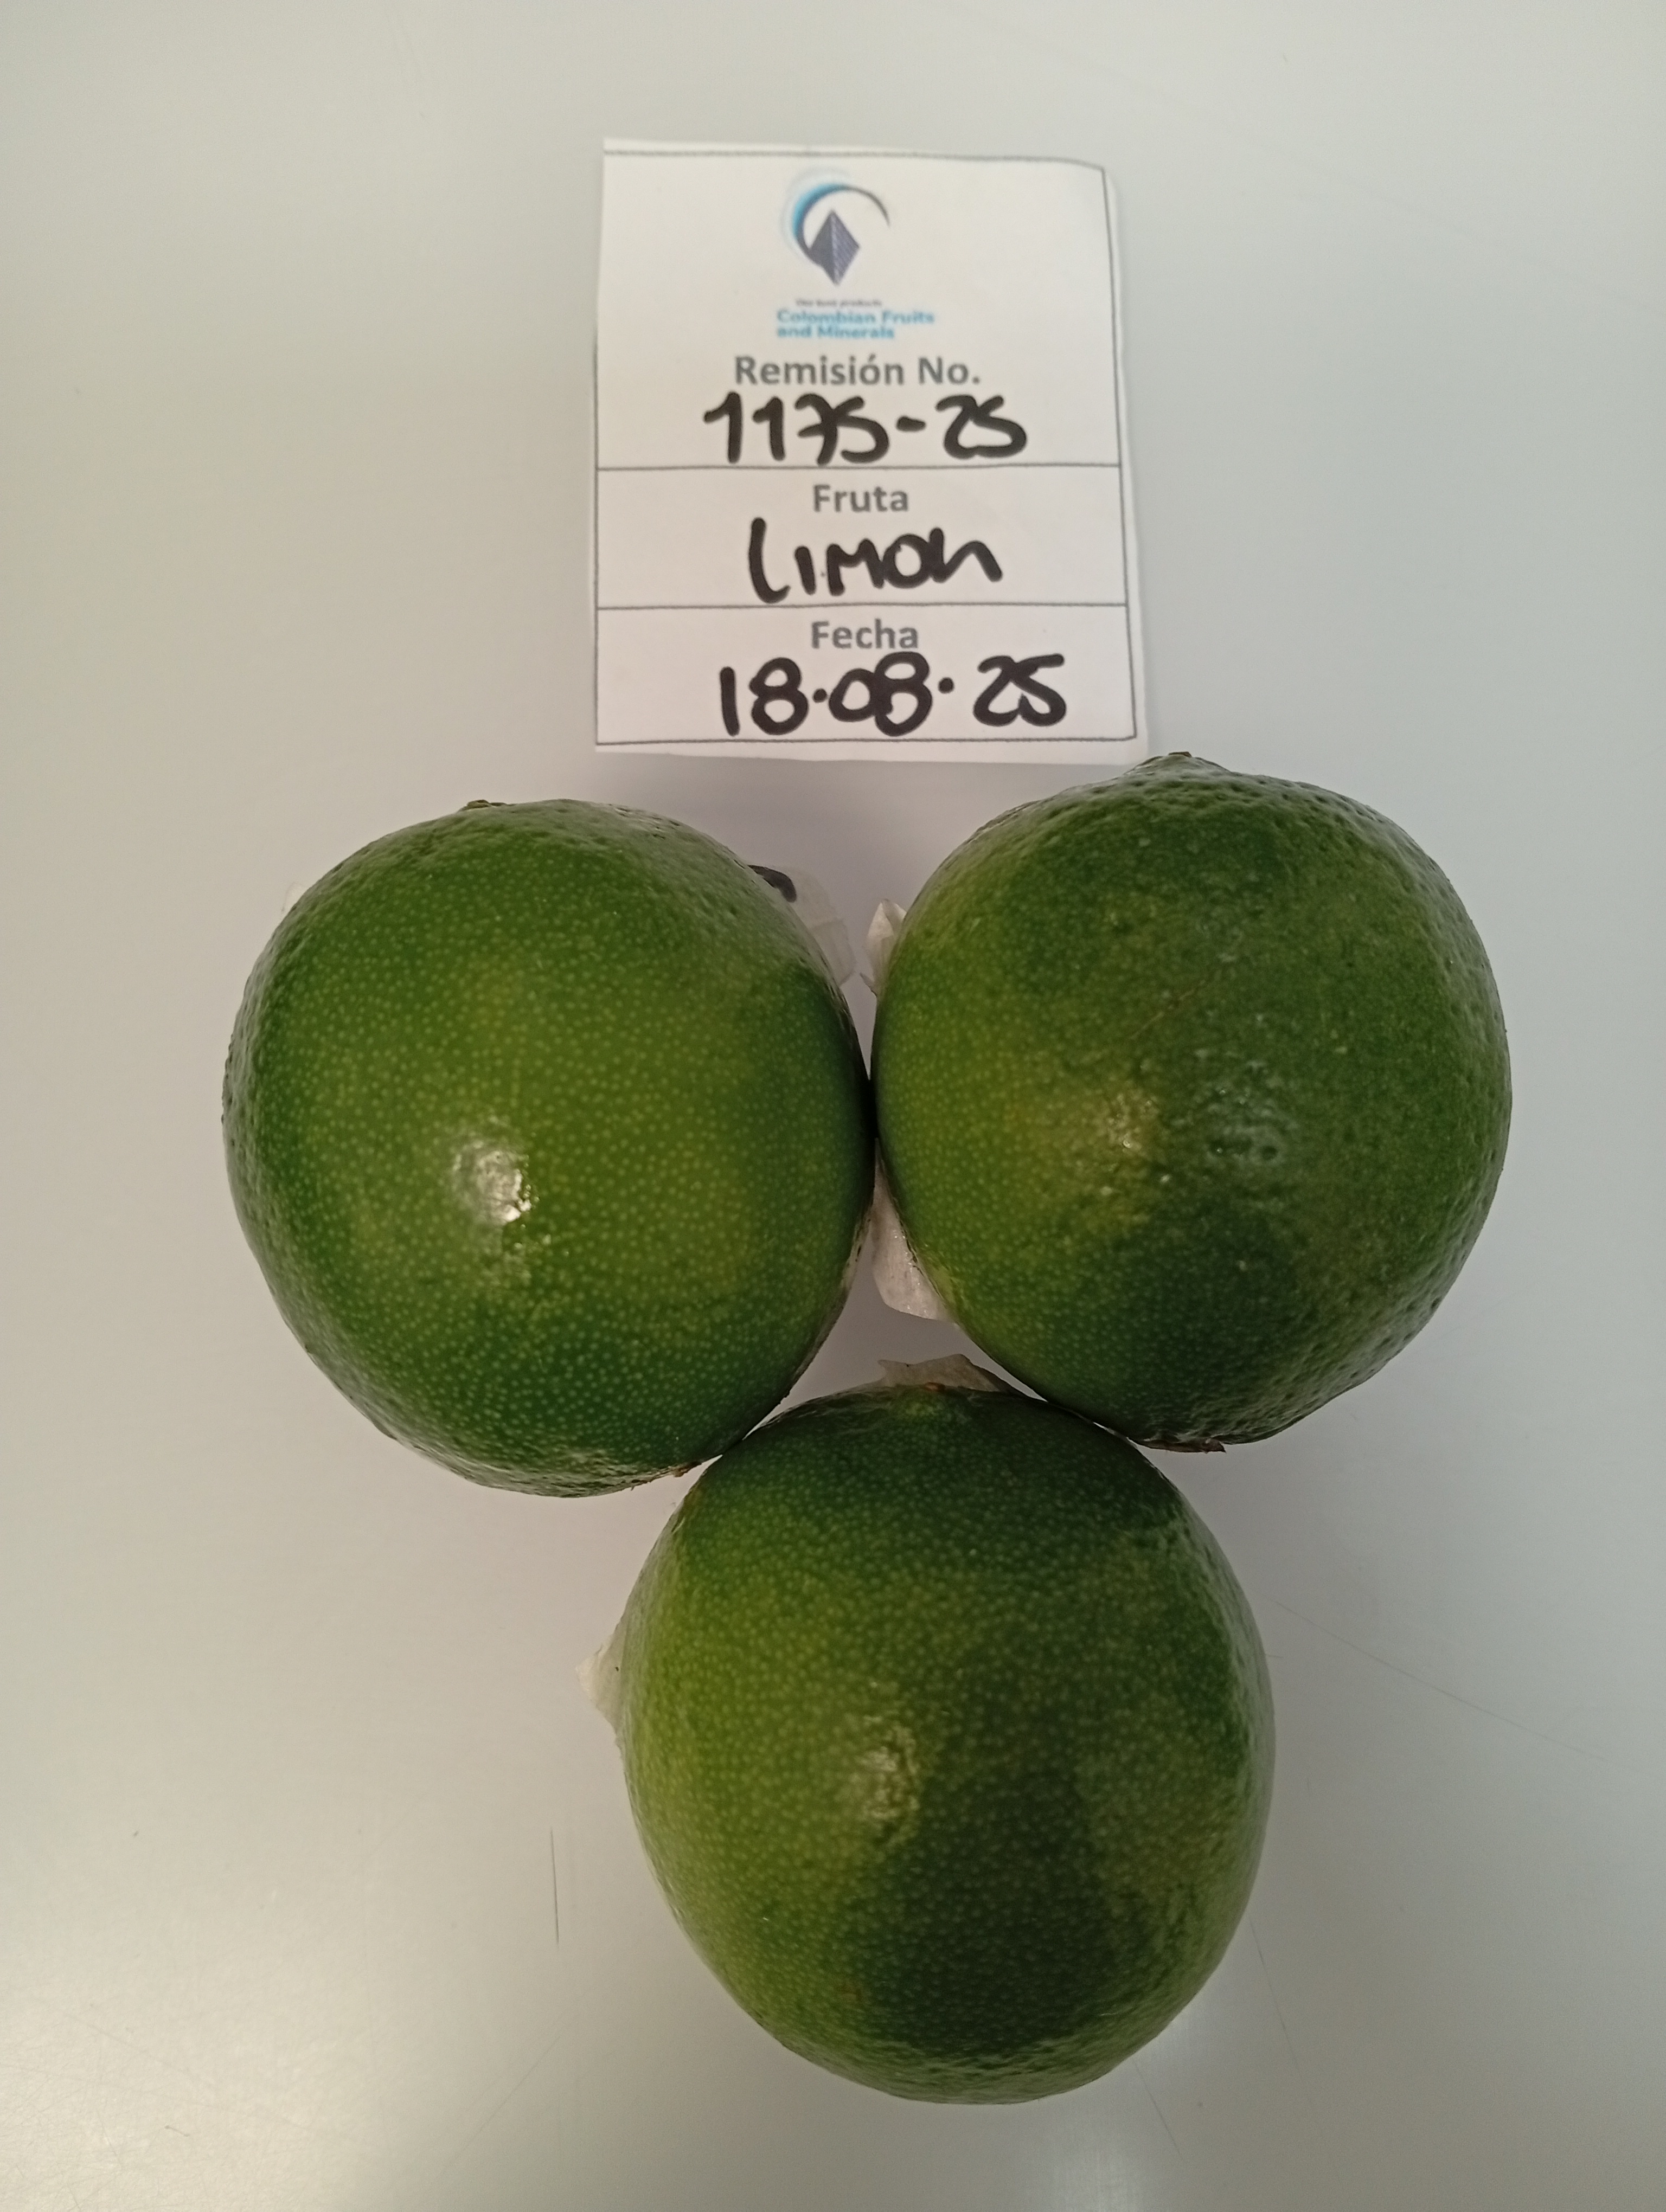 Our best products
Colombian Fruits
and Minerals
Remisión No.
1175-25
Fruta
Limon
Fecha
18.08.25